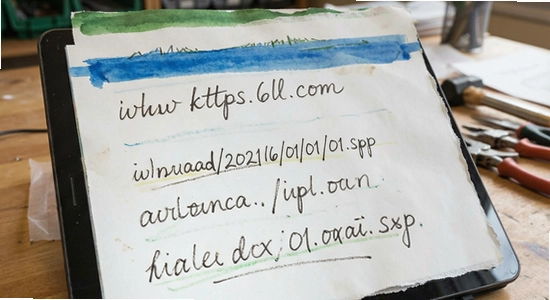 whw kttps.6ll.com
w/nuaad/2021/6/01/01/01.spp
avrlounca../upl.oun.
hialer dcx; 01.oxaï.sxp.